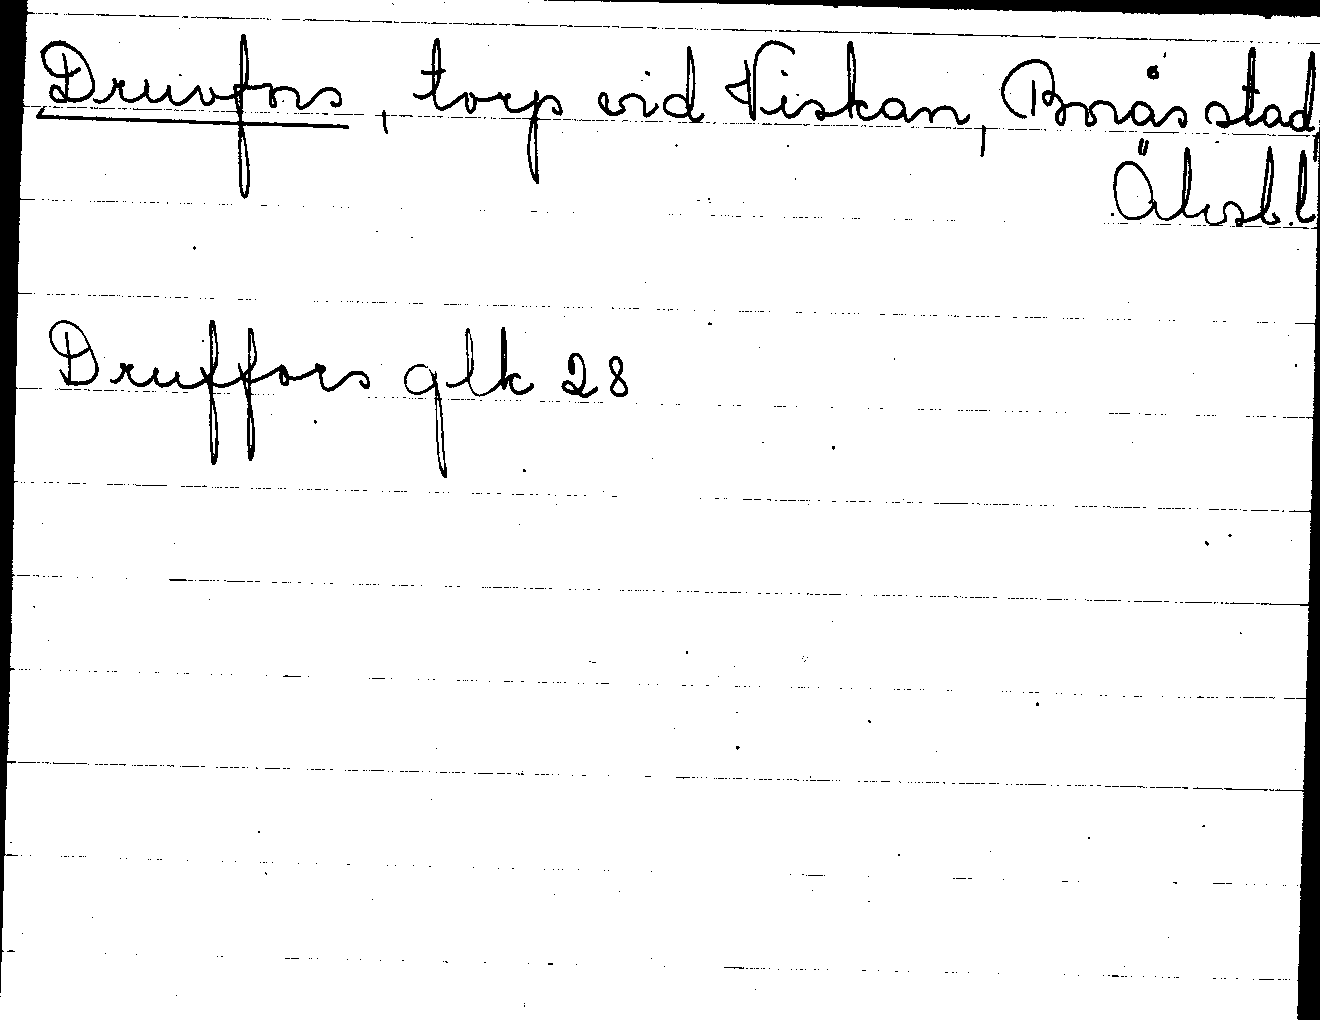 Druvfors, torp vid Viskan, Borås stad,
Älvsb. l
Druffors glk 28